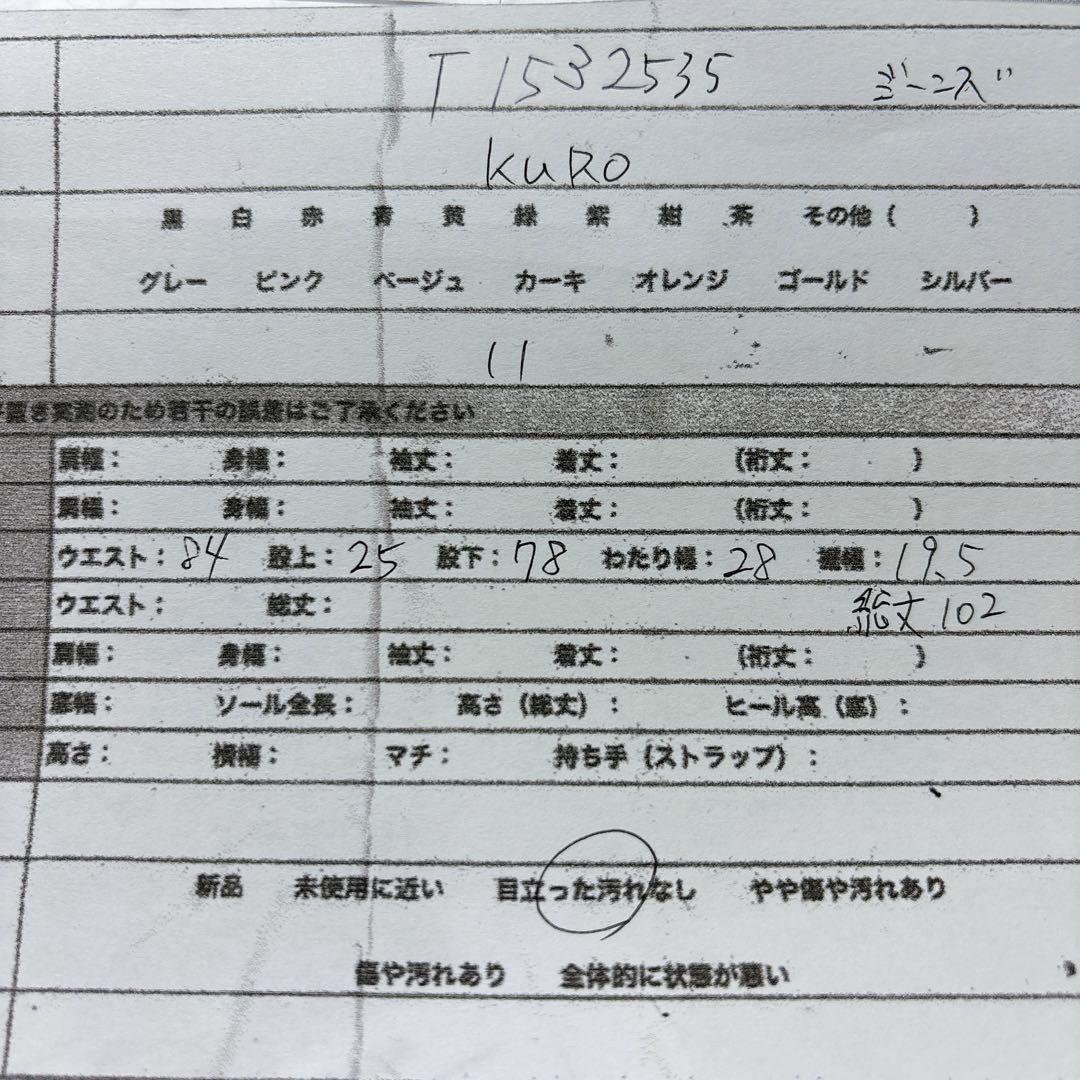 T1532535 ジーンズ
KURO
黒 白 赤 青 黄 緑 紫 紺 茶 その他( )
グレー ピンク ベージュ カーキ オレンジ ゴールド シルバー
11
平置き実測のため若干の誤差はご了承ください
肩幅: 身幅: 袖丈: 着丈: (裄丈: )
肩幅: 身幅: 袖丈: 着丈: (裄丈: )
ウエスト:84 股上:25 股下:78 わたり幅:28 裾幅:19.5
ウエスト: 総丈: 総丈 102
肩幅: 身幅: 袖丈: 着丈: (裄丈: )
底幅: ソール全長: 高さ(総丈): ヒール高(底):
高さ: 横幅: マチ: 持ち手(ストラップ):
新品 未使用に近い 目立った汚れなし やや傷や汚れあり
傷や汚れあり 全体的に状態が悪い